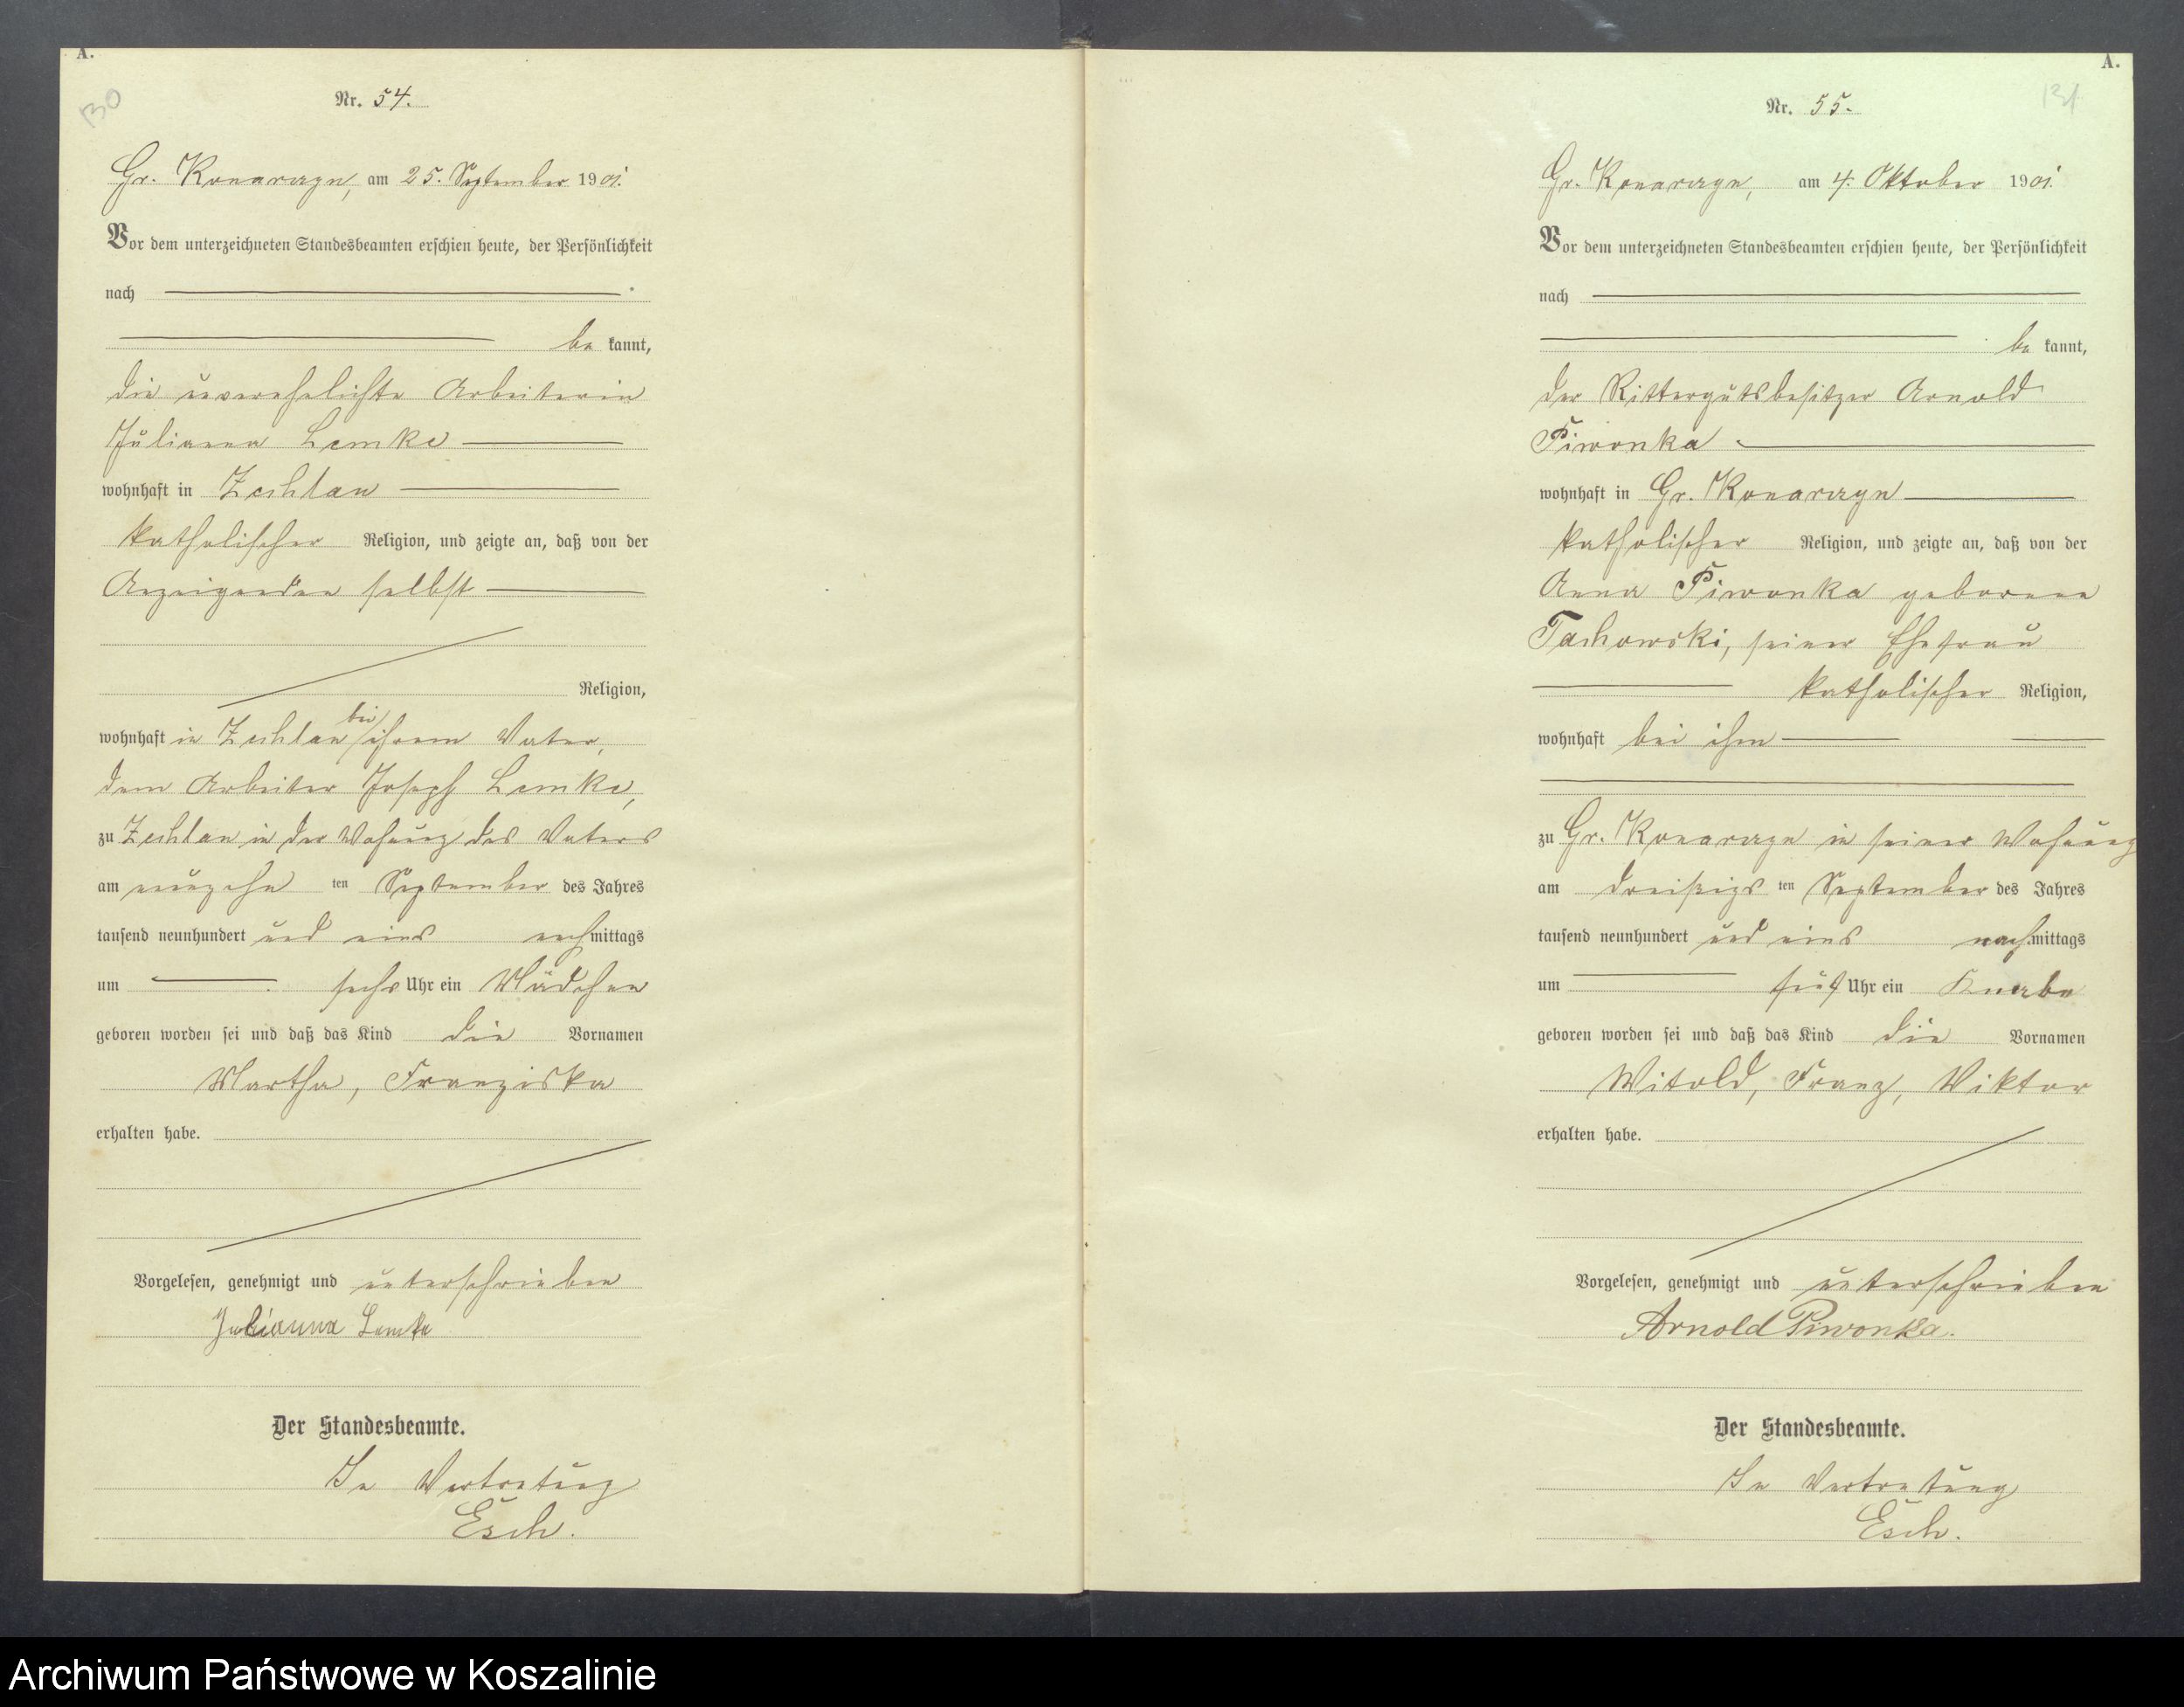 A.
130
Nr. 54.
Gr. Konarczyn, am 25. September 1901.
Vor dem unterzeichneten Standesbeamten erschien heute, der Persönlichkeit
nach
be kannt,
die unverehelichte Arbeiterin
Julianna Lemke
wohnhaft in Zechlau
katholischer Religion, und zeigte an, daß von der
Anzeigenden selbst
Religion,
wohnhaft in Zechlau bei ihrem Vater,
dem Arbeiter Joseph Lemke,
zu Zechlau in der Wohnung des Vaters
am neunzehn ten September des Jahres
tausend neunhundert und eins nachmittags
um sechs Uhr ein Mädchen
geboren worden sei und daß das Kind die Vornamen
Martha, Franziska
erhalten habe.
Vorgelesen, genehmigt und unterschrieben
Julianna Lemke
Der Standesbeamte.
In Vertretung
Esch.
A.
131
Nr. 55.
Gr. Konarczyn, am 4. Oktober 1901.
Vor dem unterzeichneten Standesbeamten erschien heute, der Persönlichkeit
nach
be kannt,
der Rittergutsbesitzer Arnold
Piwonka
wohnhaft in Gr. Konarczyn
katholischer Religion, und zeigte an, daß von der
Anna Piwonka geborene
Tachowski, seiner Ehefrau
katholischer Religion,
wohnhaft bei ihm
zu Gr. Konarczyn in seiner Wohnung
am dreißigs ten September des Jahres
tausend neunhundert und eins nachmittags
um fünf Uhr ein Knabe
geboren worden sei und daß das Kind die Vornamen
Witold, Franz, Viktor
erhalten habe.
Vorgelesen, genehmigt und unterschrieben
Arnold Piwonka.
Der Standesbeamte.
In Vertretung
Esch.
Archiwum Państwowe w Koszalinie